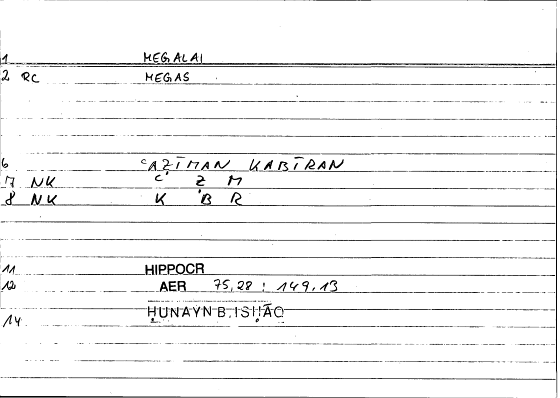 1 MEGALAI
2 RC MEGAS
6 ʿAẒĪMAN KABĪRAN
7 NK ʿ Ẓ M
8 NK K B R
11 HIPPOCR
12 AER 75,28 : 149,13
14 ḤUNAYN B. ISḤĀQ